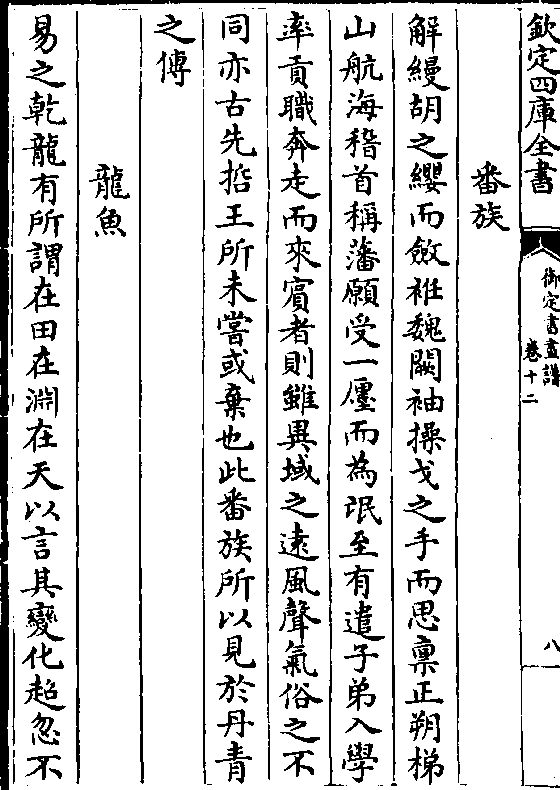 欽定四庫全書
御定書畫譜
卷十二
八
番族
解縵胡之纓而斂袵魏闕袖操戈之手而思稟正朔梯
山航海稽首稱藩願受一廛而為氓至有遣子弟入學
率貢職奔走而來賓者則雖異域之遠風聲氣俗之不
同亦古先掊王所未嘗或棄也此番族所以見於丹青
之傳
龍魚
易之乾龍有所謂在田在淵在天以言其變化超忽不